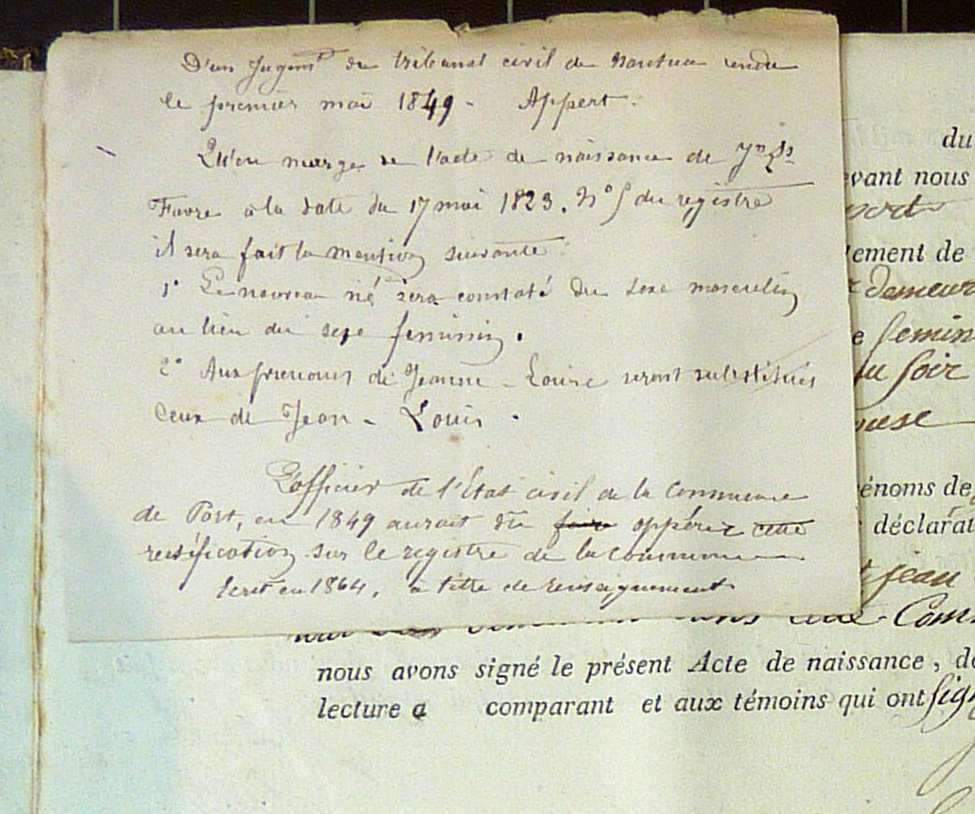 D'un Jugemt du tribunal civil de Nantua rendu
le premier mai 1849 - Appert.
Qu'en marge de l'acte de naissance de Jn Ls
Favre à la date du 17 mai 1823. N° 5 du registre
il sera fait la mention suivante :
1° Le nouveau né sera constaté du sexe masculin
au lieu du sexe feminin.
2° Aux prenoms de Jeanne - Louise seront substitués
Ceux de Jean - Louis.
L'officier de l'Etat civil de la Commune
de Port, en 1849 aurait du faire oppérer cette
rectification sur le registre de la commune
Ecrit en 1864, à titre de renseignement
du
evant nous
tement de
demeur
e feminin
du soir
ouse
énoms de
déclarat
jean
Com
nous avons signé le présent Acte de naissance, d
lecture a comparant et aux témoins qui ont sign